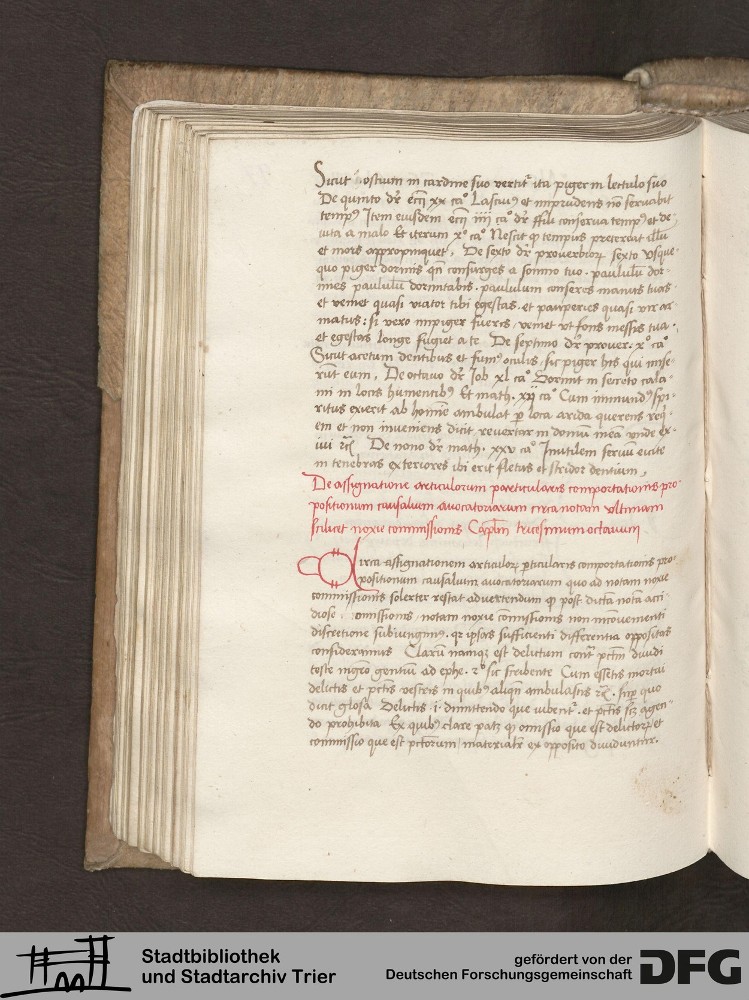 Sicut ostium in cardine suo vertit᷑ ita piger in lectulo suo
De quinto dr̄ ecci xx ca° Lasciuꝰ et imprudens nō seruabit
tempꝰ Item eiusdem ecci iiij ca° dr̄ ffili conserua tempꝰ et de-
uita a malo Et iterum x° ca° Nescit ꝙ tempus pretereat illū
et mors appropinquet, De sexto dr̄ prouerbiorꝝ sexto Vsque-
quo piger dormis qn̄ consurges a somno tuo. paululū dor-
mies paululū dormitabis. paululum conseres manus tuas
et veniet quasi viator tibi egestas. et pauperies quasi vir ar-
matus: si vero impiger fueris, veniet vt fons messis tua.
et egestas longe fugiet a te De septimo dr̄ prouer. x° ca°
Sicut acetum dentibus et fumꝰ oculis, sic piger his qui mise-
rūt eum, De octauo dr̄ Job xl ca° Dormit in secreto cala-
mi in locis humentibꝰ Et math. xij ca° Cum immundꝰ spi-
ritus exierit ab homīe ambulat ꝑ loca arida querens requi-
em et non inueniens dicit reuertar in domū meā vnde ex-
iui rc̄ De nono dr̄ math. xxv ca° Inutilem seruū eicite
in tenebras exteriores ibi erit fletus et stridor dentium,
De assignatione articulorum particularis comportationis pro-
positionum causalium auocatoriarum circa notam vltimam
scilicet noxie commissionis Caplm̄ tricesimum octauum
Circa assignationem articulorꝝ ꝑticularis comportationis pro-
positionum causalium auocatoriarum quo ad notam noxie
commissionis solerter restat aduertendum ꝙ post dictā notā acci-
diose omissionis, notam noxie cōmissionis non inconuenienti
discretione subiungimꝰ. qr ipsas sufficienti differentia oppositas
consideramus Clarū namqꝫ est delictum contͣ pctm̄ diuidi
teste magro gentium ad ephe. 2° sic scribente Cum essetis mortui
delictis et pctīs vestris in quibꝰ aliqn̄ ambulastis rc̄. suꝑ quo
dicit glosa Delictis .i. dimittendo que iubent᷑. et pctīs scꝫ agen-
do prohibita Ex quibꝰ clare patꝫ ꝙ omissio que est delictorꝝ et
commissio que est pctōrum, materialiter ex opposito diuiduntur.
Stadtbibliothek
und Stadtarchiv Trier
gefördert von der
Deutschen Forschungsgemeinschaft
DFG